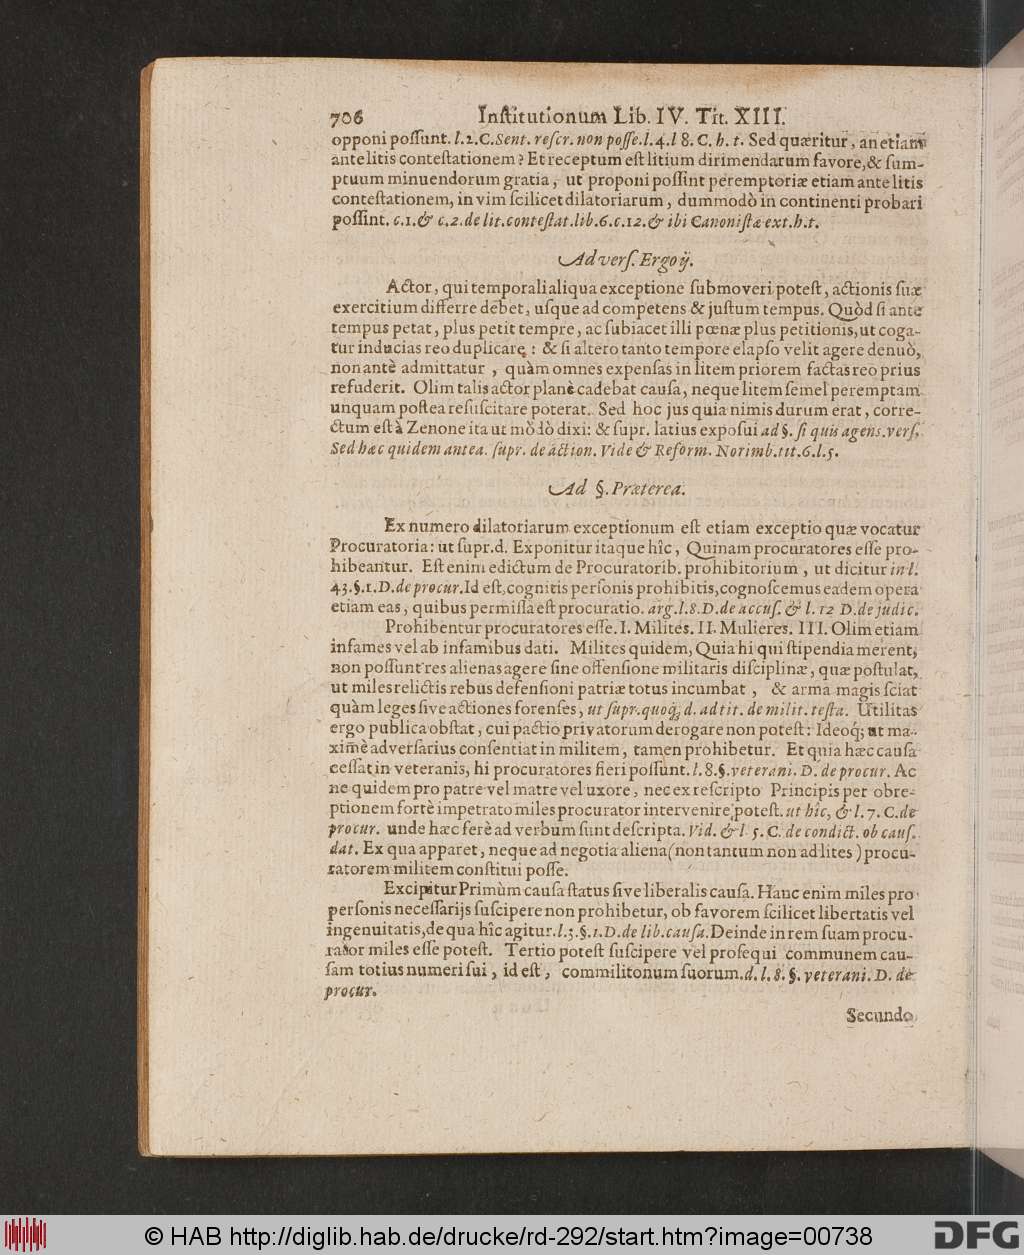 706 Inſtitutionum Lib. IV. Tit. XIII.
opponi poſſunt. l.2.C.Sent. reſcr. non poſſe.l.4.l 8. C. h. t. Sed quæritur, an etiam
ante litis conteſtationem? Et receptum eſt litium dirimendarum favore,& ſum-
ptuum minuendorum gratia, ut proponi poſſint peremptoriæ etiam ante litis
conteſtationem, in vim ſcilicet dilatoriarum, dummodò in continenti probari
poſſint. c.1.& c.2.de lit.conteſtat.lib.6.c.12.& ibi Canoniſtæ ext.h.t.
Ad verſ. Ergo ij.
Actor, qui temporali aliqua exceptione ſubmoveri poteſt, actionis ſuæ
exercitium differre debet, uſque ad competens & juſtum tempus. Quòd ſi ante
tempus petat, plus petit tempre, ac ſubiacet illi pœnæ plus petitionis,ut coga-
tur inducias reo duplicare: & ſi altero tanto tempore elapſo velit agere denuò,
non antè admittatur, quàm omnes expenſas in litem priorem factas reo prius
refuderit. Olim talis actor planè cadebat cauſa, neque litem ſemel peremptam
unquam poſtea reſuſcitare poterat. Sed hoc jus quia nimis durum erat, corre-
ctum eſt à Zenone ita ut mòdò dixi: & ſupr. latius expoſui ad §. ſi quis agens.verſ.
Sed hæc quidem antea. ſupr. de action. Vide & Reform. Norimb.tit.6.l.5.
Ad §. Præterea.
Ex numero dilatoriarum exceptionum eſt etiam exceptio quæ vocatur
Procuratoria: ut ſupr.d. Exponitur itaque hîc, Quinam procuratores eſſe pro-
hibeantur. Eſt enim edictum de Procuratorib. prohibitorium, ut dicitur in l.
43.§.1.D.de procur.Id eſt,cognitis perſonis prohibitis,cognoſcemus eadem opera
etiam eas, quibus permiſſa eſt procuratio. arg.l.8.D.de accuſ. & l. 12 D.de judic.
Prohibentur procuratores eſſe. I. Milites. II. Mulieres. III. Olim etiam
infames vel ab infamibus dati. Milites quidem, Quia hi qui ſtipendia merent,
non poſſunt res alienas agere ſine offenſione militaris diſciplinæ, quæ poſtulat,
ut miles relictis rebus defenſioni patriæ totus incumbat, & arma magis ſciat
quàm leges ſive actiones forenſes, ut ſupr.quoq; d. ad tit. de milit. teſta. Utilitas
ergo publica obſtat, cui pactio privatorum derogare non poteſt: Ideoq; ut ma-
ximè adverſarius conſentiat in militem, tamen prohibetur. Et quia hæc cauſa
ceſſat in veteranis, hi procuratores fieri poſſunt. l.8.§.veterani. D. de procur. Ac
ne quidem pro patre vel matre vel uxore, nec ex reſcripto Principis per obre-
ptionem fortè impetrato miles procurator intervenire poteſt. ut hîc, & l. 7. C.de
procur. unde hæc ferè ad verbum ſunt deſcripta. Vid. & l. 5. C. de condict. ob cauſ.
dat. Ex qua apparet, neque ad negotia aliena (non tantum non ad lites) procu-
ratorem militem conſtitui poſſe.
Excipitur Primùm cauſa ſtatus ſive liberalis cauſa. Hanc enim miles pro
perſonis neceſſarijs ſuſcipere non prohibetur, ob favorem ſcilicet libertatis vel
ingenuitatis,de qua hîc agitur.l.3.§.1.D.de lib.cauſa.Deinde in rem ſuam procu-
rator miles eſſe poteſt. Tertio poteſt ſuſcipere vel proſequi communem cau-
ſam totius numeri ſui, id eſt, commilitonum ſuorum.d. l. 8. §. veterani. D. de
procur.
Secundo
© HAB http://diglib.hab.de/drucke/rd-292/start.htm?image=00738
DFG